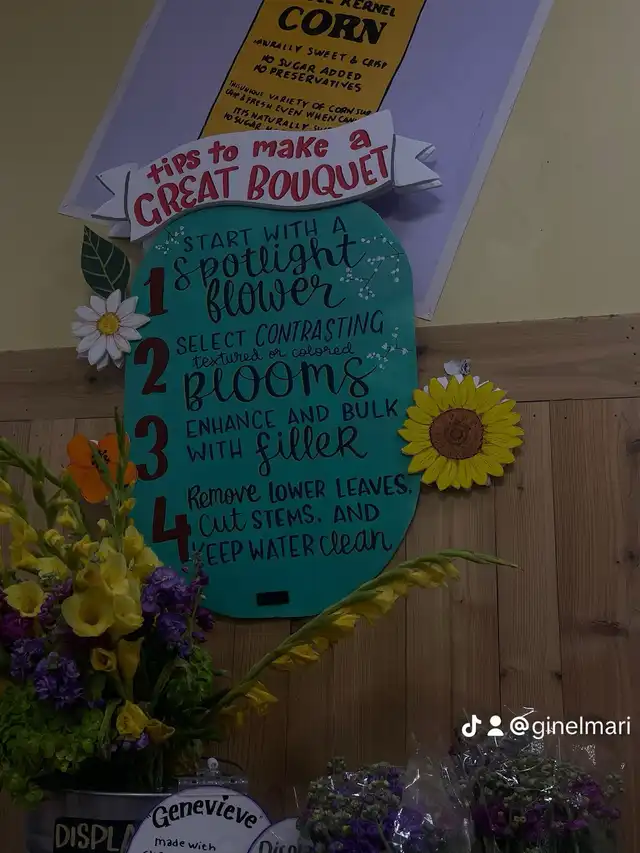 KERNEL
CORN
NATURALLY SWEET & CRISP
NO SUGAR ADDED
NO PRESERVATIVES
VARIETY OF CORN
& FRESH EVEN WHEN
IT IS NATURALLY
tips to make a
GREAT BOUQUET
START WITH A
1 spotlight
flower
2 SELECT CONTRASTING
textured or colored
BLOOMS
3 ENHANCE AND BULK
WITH filler
4 Remove LOWER LEAVES,
Cut STEMS, AND
KEEP WATER clean
@ginelmari
DISPLA
Genevieve
made with